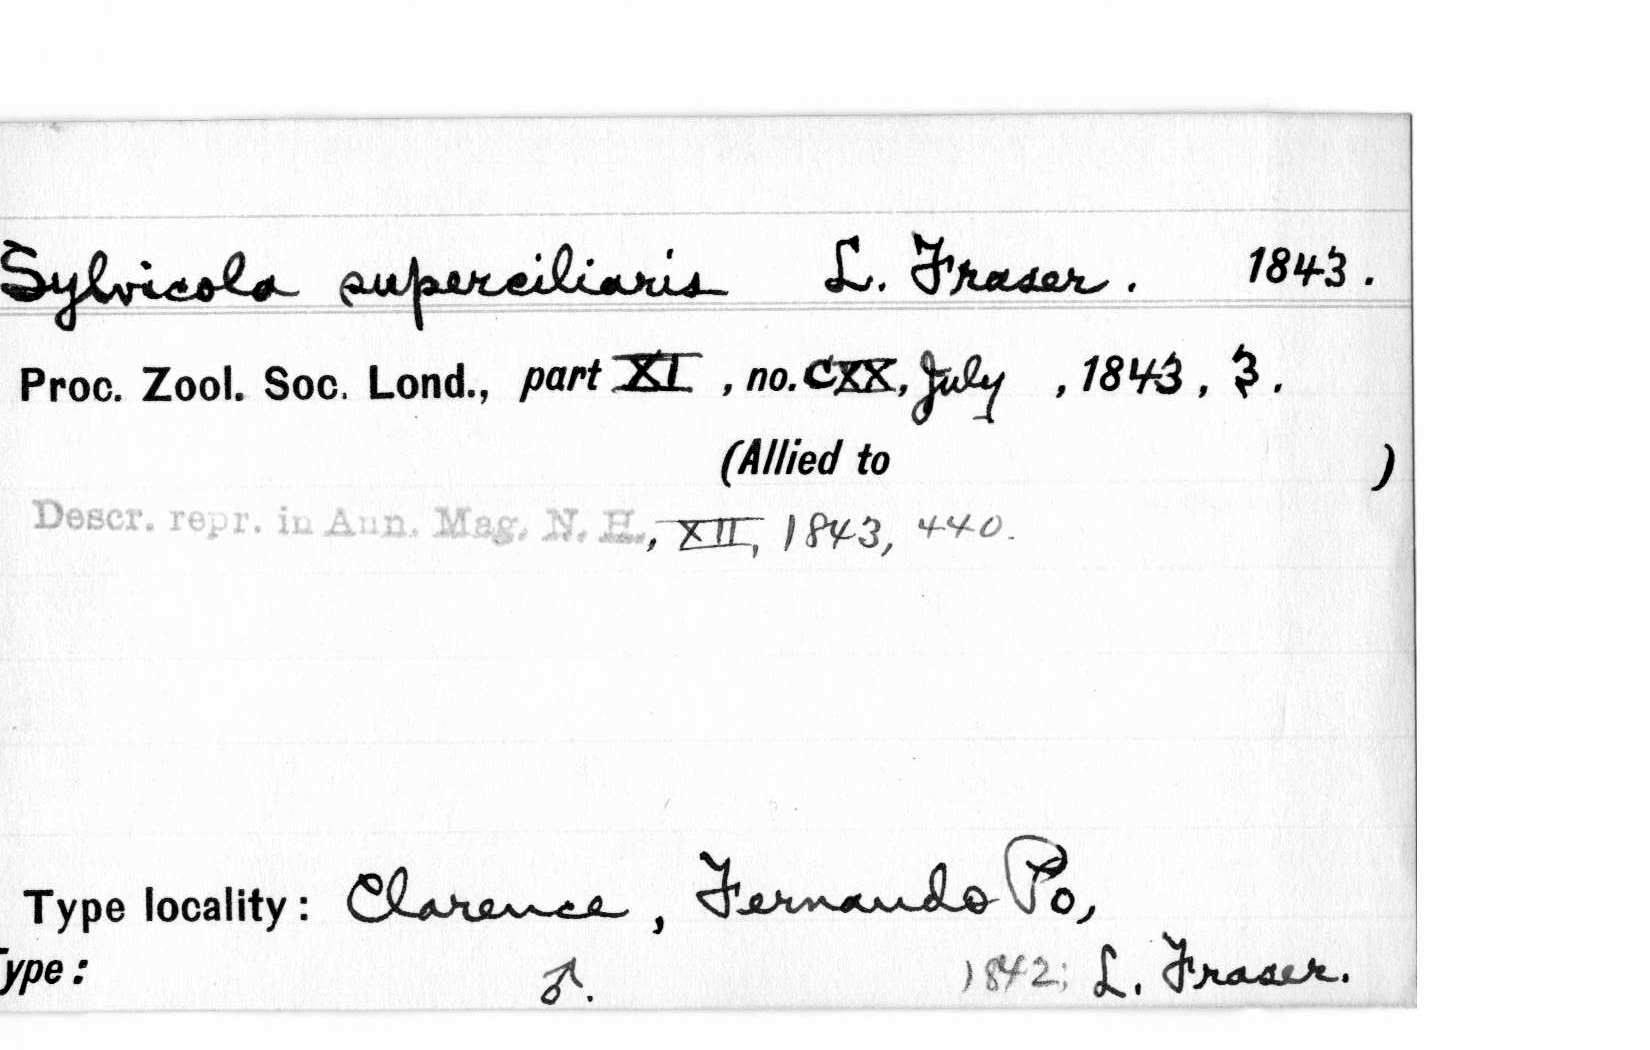 Sylvicola superciliaris L. Fraser. 1843.
Proc. Zool. Soc. Lond., part XI, no. CXX, July, 1843, 3.
(Allied to )
Descr. repr. in Ann. Mag. N. H., XII, 1843, 440.
Type locality: Clarence, Fernando Po,
Type: ♂. 1842; L. Fraser.